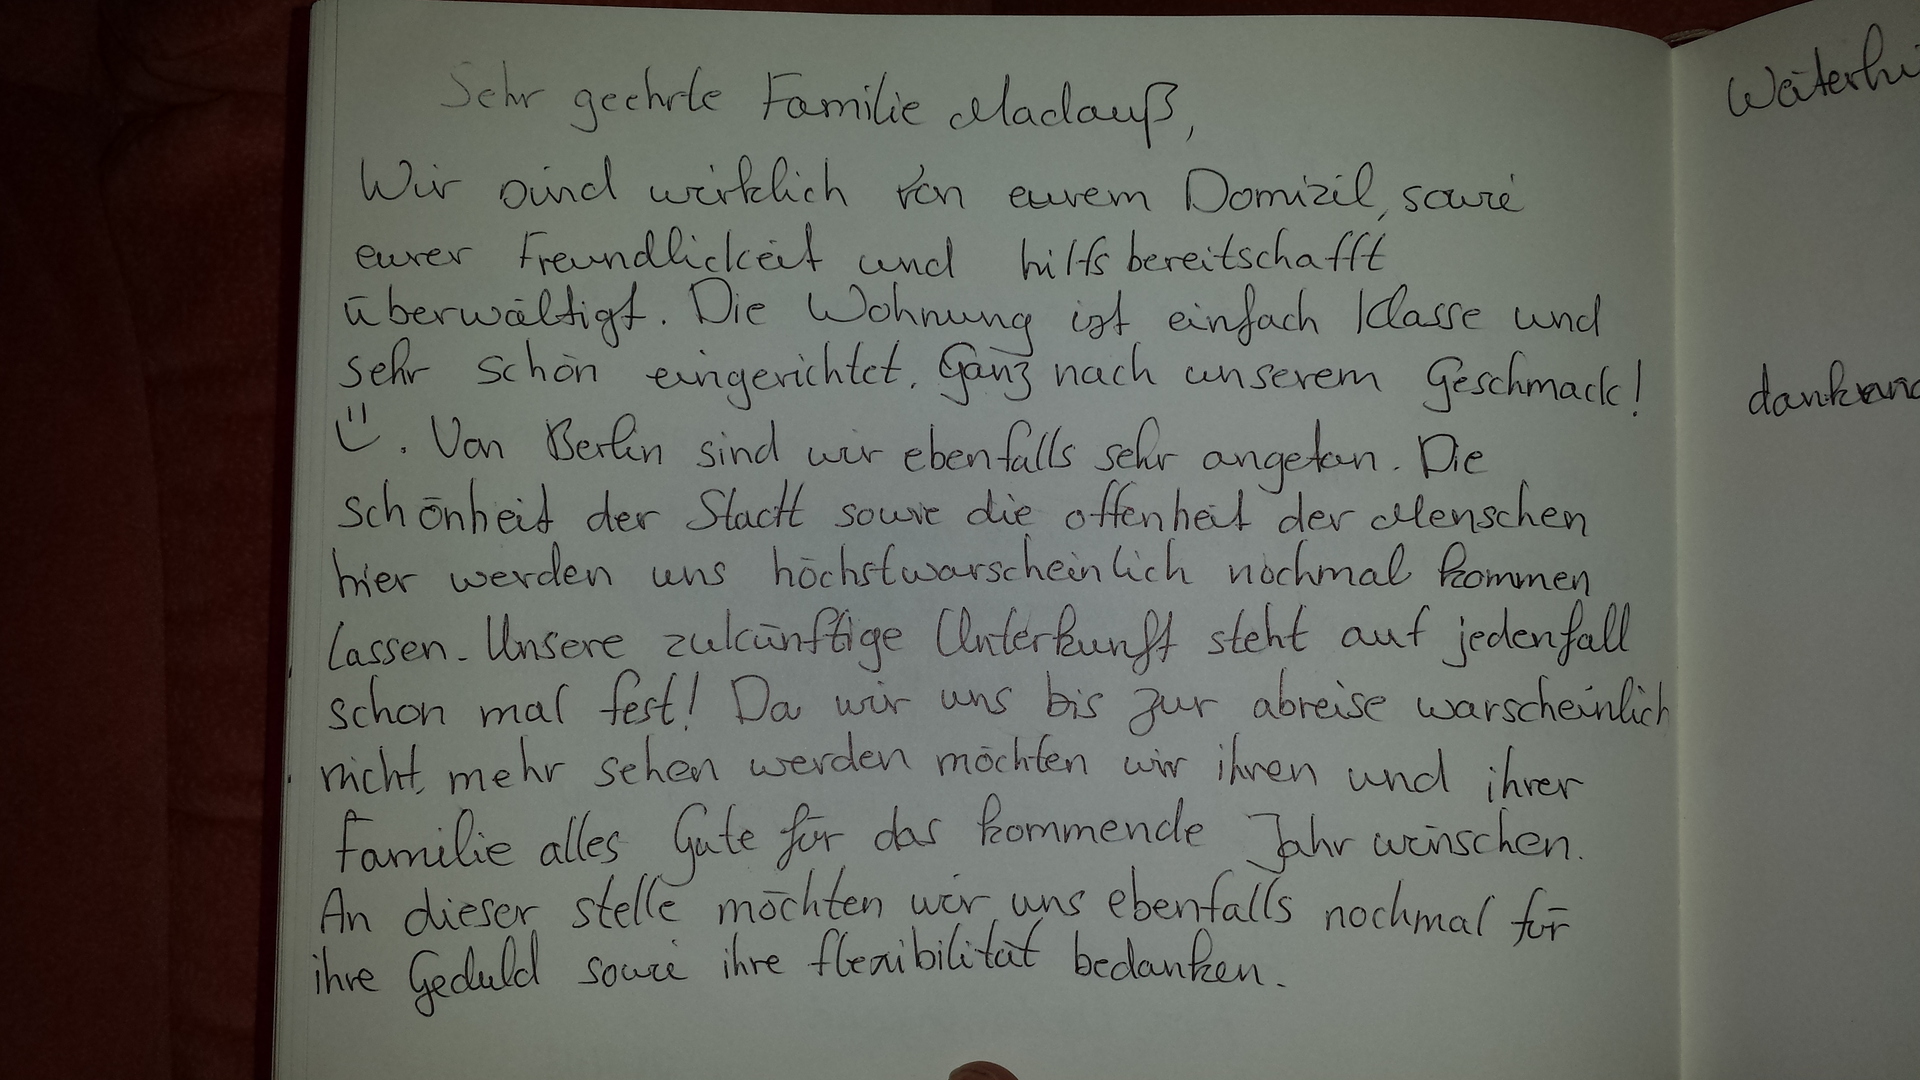 Sehr geehrte Familie Madauß,
Wir sind wirklich von eurem Domizil, sowie
eurer Freundlickeit und hilfsbereitschafft
überwältigt. Die Wohnung ist einfach Klasse und
sehr schön eingerichtet. Ganz nach unserem Geschmack!
Von Berlin sind wir ebenfalls sehr angetan. Die
schönheit der Stadt sowie die offenheit der Menschen
hier werden uns höchstwarscheinlich nochmal kommen
lassen. Unsere zukünftige Unterkunft steht auf jedenfall
schon mal fest! Da wir uns bis zur abreise warscheinlich
nicht mehr sehen werden möchten wir ihnen und ihrer
Familie alles Gute für das kommende Jahr wünschen.
An dieser stelle möchten wir uns ebenfalls nochmal für
ihre Geduld sowie ihre flexibilität bedanken.